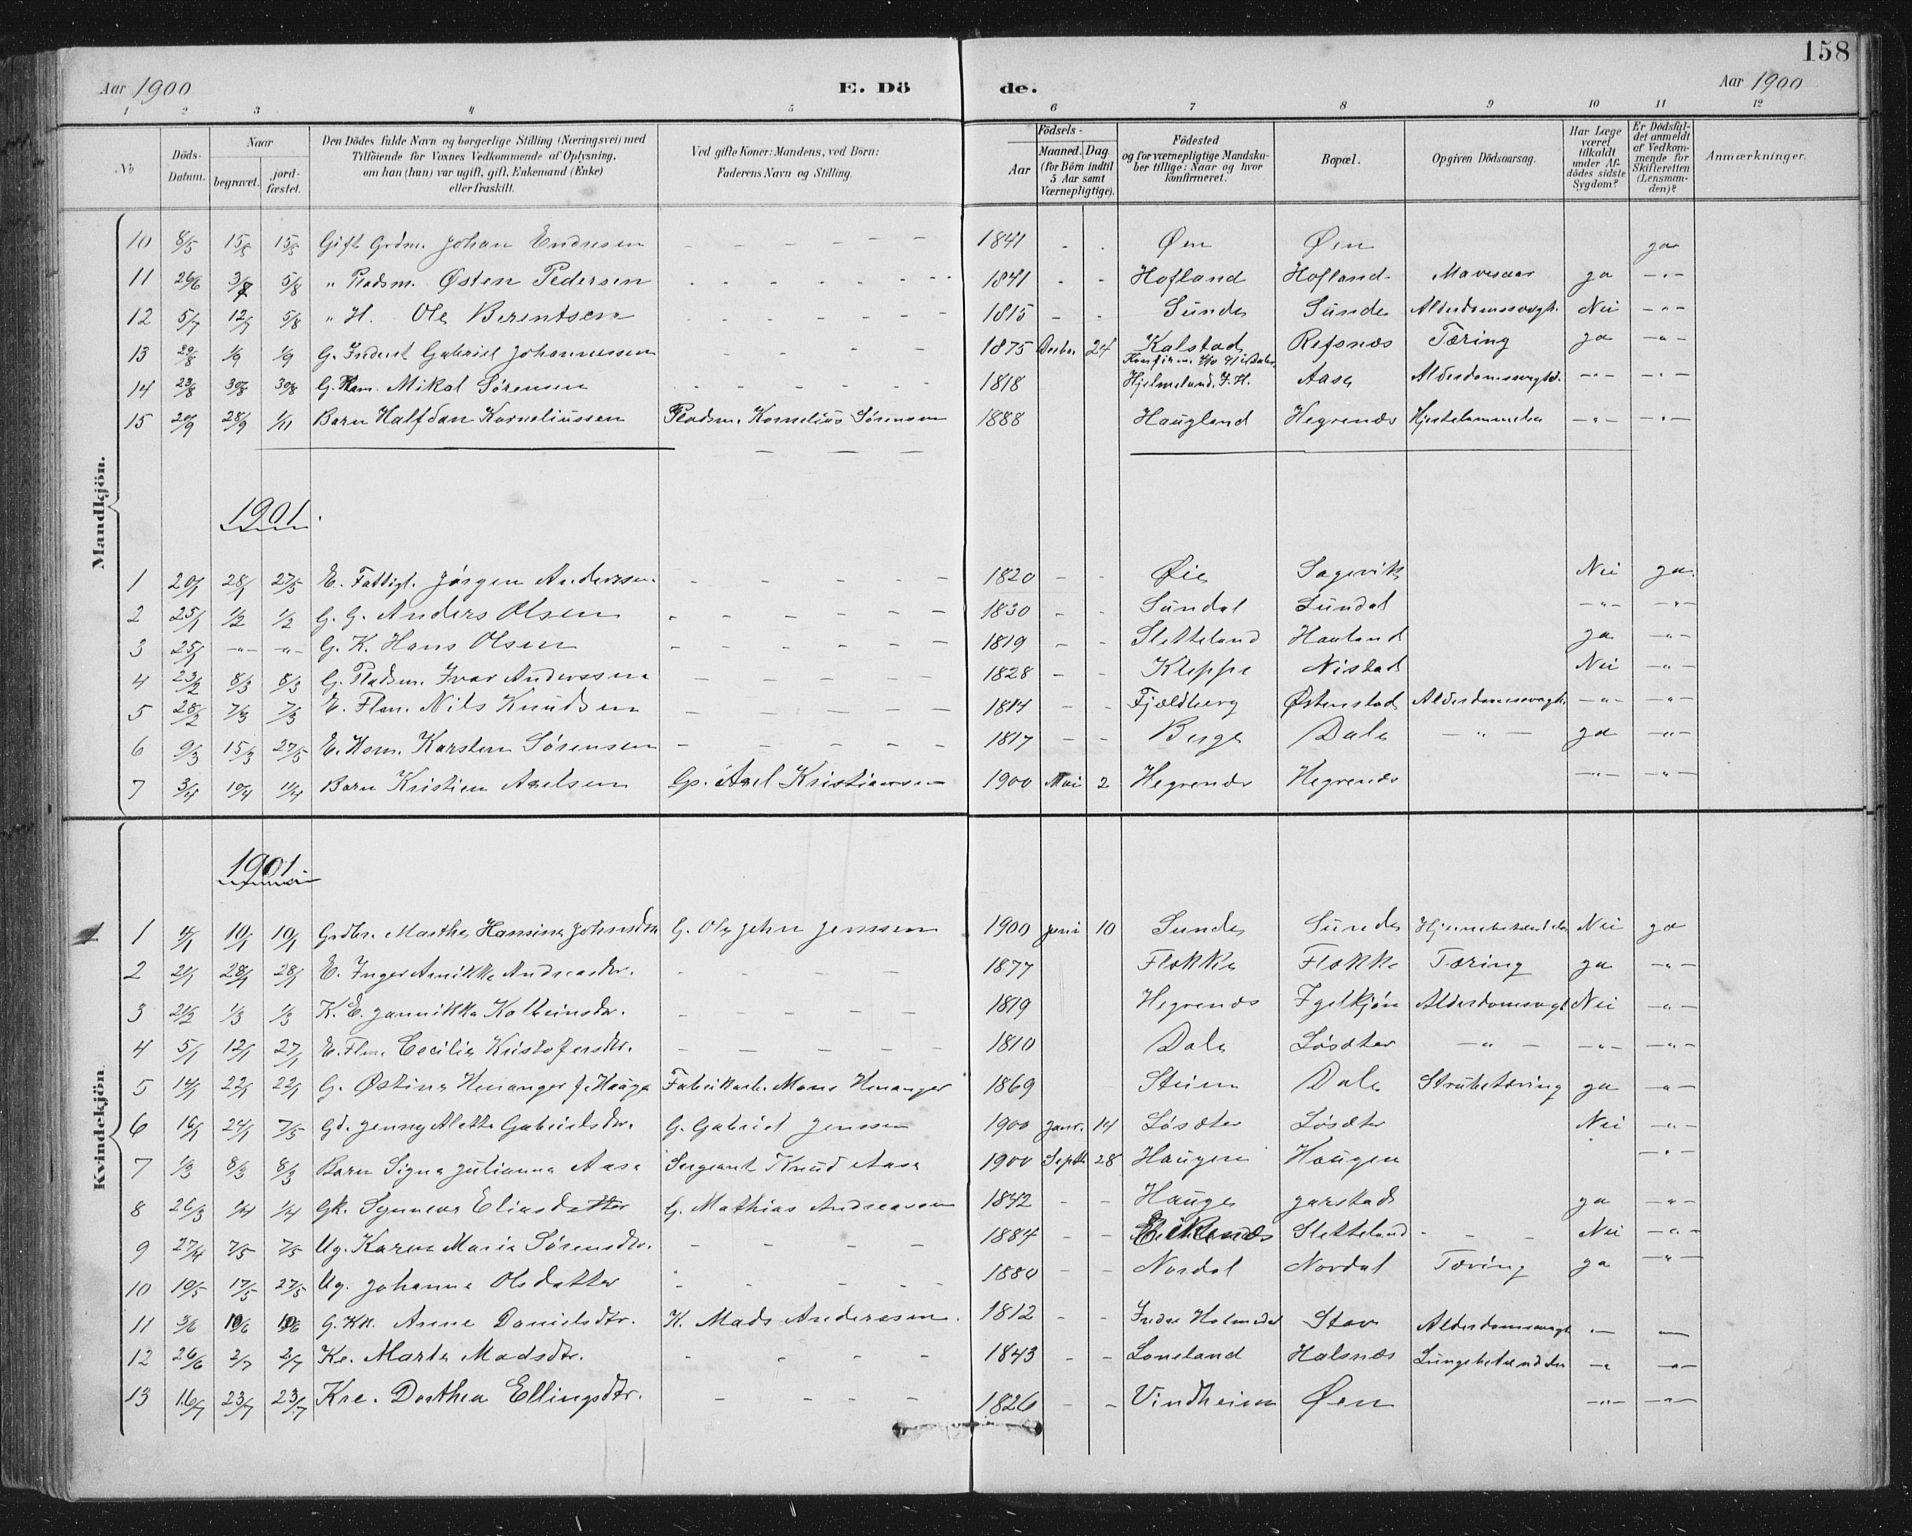 158
Aar 1900 E. Dö de. Aar 1900
1 2 3 4 5 6 7 8 9 10 11 12
No
Döds-Datum.
Naar
begravet.
jord-fæstet.
Den Dödes fulde Navn og borgerlige Stilling (Næringsvei) med
Tilföiende for Voxnes Vedkommende af Oplysning,
om han (hun) var ugift, gift, Enkemand (Enke)
eller fraskilt.
Ved gifte Koner: Mandens, ved Börn:
Faderens Navn og Stilling.
Födsels-
Aar
Maaned. Dag
(for Börn indtil
5 Aar samt
Værnepligtige).
Födested
og for værnepligtige Mandska-
ber tillige: Naar og hvor
konfirmeret.
Bopæl.
Opgiven Dödsaarsag.
Har Læge
været
tilkaldt
under Af-
dödes sidste
Sygdom?
Er Dödsful-
det anmeldt
af Vedkom-
mende for
Skifteretten
(Lensman-
den)?
Anmærkninger.
Mandkjön.
10 8/5 15/5 15/5 Gift Grdm. Johan Endresen - - - - - 1841 - - Øen Øen ja
11 26/6 3/7 5/8 " Pladsm. Østen Pedersen - - - - - 1841 - - Hofland Hofland Mavesaar ja -"-
12 5/7 12/7 5/8 " H. Ole Berentsen - - - - - 1815 - - Sunde Sunde Alderdomssvagh. Nei -"-
13 29/8 1/9 1/9 G. Inderst Gabriel Johannessen 1875 Decbr. 24 Kalstad Refsnæs Tæring ja -"-
14 23/8 30/8 30/8 G. Mikal Sørensen - - - - - 1818 Hjelmeland. Aase Alderdomssvagh. -"- -"-
15 20/9 28/9 1/11 Barn Halfdan Korneliussen Pladsm. Kornelius Sørensen 1888 Haugland Hegrenæs -"- -"-
1901.
1 20/1 28/1 27/5 E. Fattigl. Jørgen Anderssen - - - - 1820 - - Øie Sagevik Nei ja
2 25/1 1/2 1/2 G. G. Anders Olsen - - - - - 1830 - - Sundal Sundal -"- -"-
3 25/1 -"- -"- G. K. Hans Olsen - - - - - 1819 - - Sletteland Hauland ja -"-
4 23/2 8/3 8/3 G. Pladsm. Ivar Anderssen - - - - - 1828 - - Kleppe Nistad Nei -"-
5 28/2 7/3 7/3 E. Flm. Nils Knudsen - - - - - 1814 - - Fjeldberg Østenstad Alderdomssvagh. -"- -"-
6 9/3 15/3 27/5 E. Hsm. Karsten Sørensen - - - - - 1817 - - Berge Dale - " - ja -"-
7 3/4 10/4 11/4 Barn Kristien Axelsen Gp. Axel Kristiansen 1900 Mai 2 Hegrenæs Hegrenæs -"- -"-
Kvindekjön.
1901.
1 4/1 10/1 10/1 Grdbr. Marthe Hansine Johnsdtr. G. Ole John Jenssen 1900 Juni 10 Sunde Sunde Nei ja
2 21/1 28/1 28/1 E. Inger Annikka Andreasdtr. - - - 1877 Flokke Flokke Tæring ja -"-
3 21/2 1/3 1/3 K. E. Jannikke Kolbeinsdtr. - - - - - 1819 Hegrenæs Igelkjøn Alderdomssvagh. Nei -"-
4 5/1 12/1 27/1 E. Flm. Cecilie Kristofersdtr. - - - - - 1810 Dale Løsæter - " - -"- -"-
5 14/1 22/1 22/1 G. Østine Henanger f. Hauge Fabrikarb. Mons Henanger 1869 Steien Dale Strubetæring ja -"-
6 16/1 24/1 7/5 Gd. Jenny Alette Gabrielsdtr. G. Gabriel Jenssen 1900 Janr. 14 Løsæter Løsæter Nei -"-
7 1/3 8/3 8/3 Barn Signe Julianna Aase Sergeant Knud Aase 1900 Septb. 28 Haugen Haugen -"-
8 26/3 1/4 1/4 Gk. Synneve Eliasdatter G. Mathias Andreassen 1842 - - Hauge Jarstad ja -"-
9 27/4 7/5 7/5 Ug. Karen Maria Sørensdtr. - - - - 1884 - - Eikenæs Sletteland - - - Nei -"-
10 10/5 17/5 27/5 Ug. Johanna Olsdatter - - - - 1880 - - Nordal Nordal Tæring ja "
11 3/6 10/6 10/6 G. Kk. Anne Danielsdtr. K. Mads Andersen. 1812 - - Indre Holmedal Stav Alderdomssvagh. - -
12 26/6 2/7 2/7 Ke. Marte Madsdtr. - - - 1843 - - Loneland Halsnæs Lungebetændelse -" -"-
13 16/7 23/7 23/7 Kre. Dorthea Ellingsdtr. - - - - 1826 - - Vindheim Øen -"- -"-